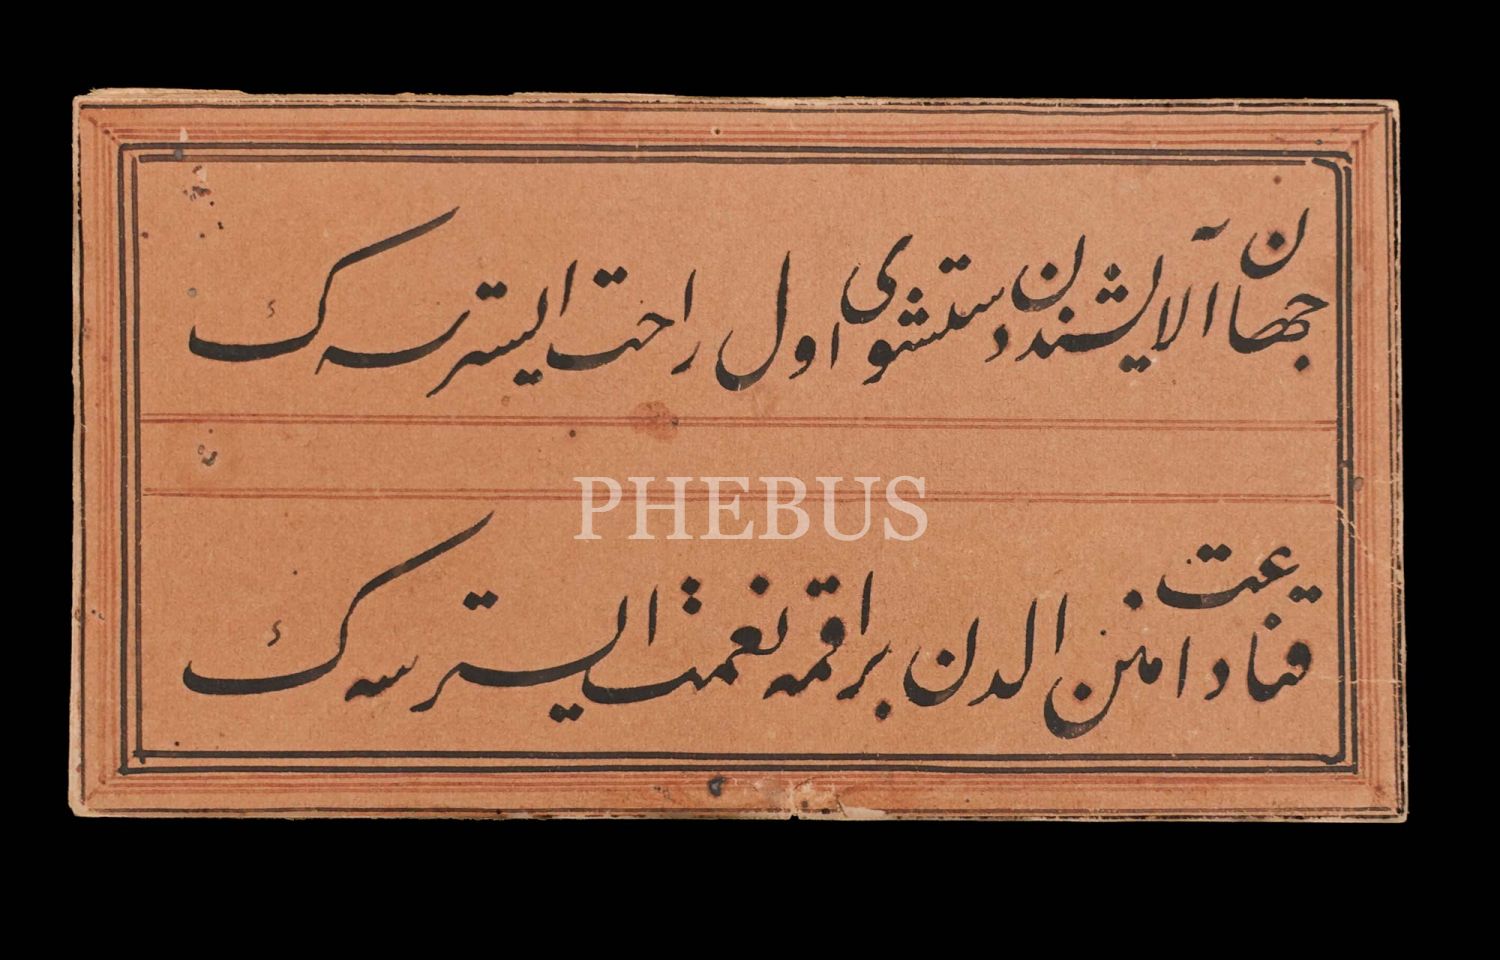 جهان آلایشندن دستشوی اول راحت ایسترسه ك
PHEBUS
قناعت دامنن الدن براقمه نعمت ایسترسه ك